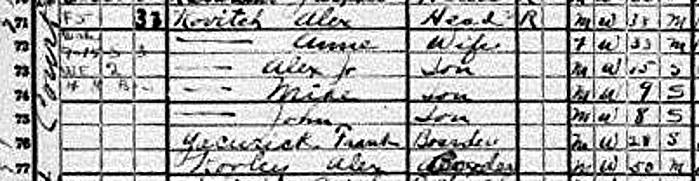 71 33 Kovitch Alex Head R M W 38 M
72 — Anne Wife F W 33 M
73 — Alex Jr Son M W 15 S
74 — Mike Son M W 9 S
75 — John Son M W 8 S
76 Frank Boarder M W 28 S
77 Alex Boarder M W 50 M